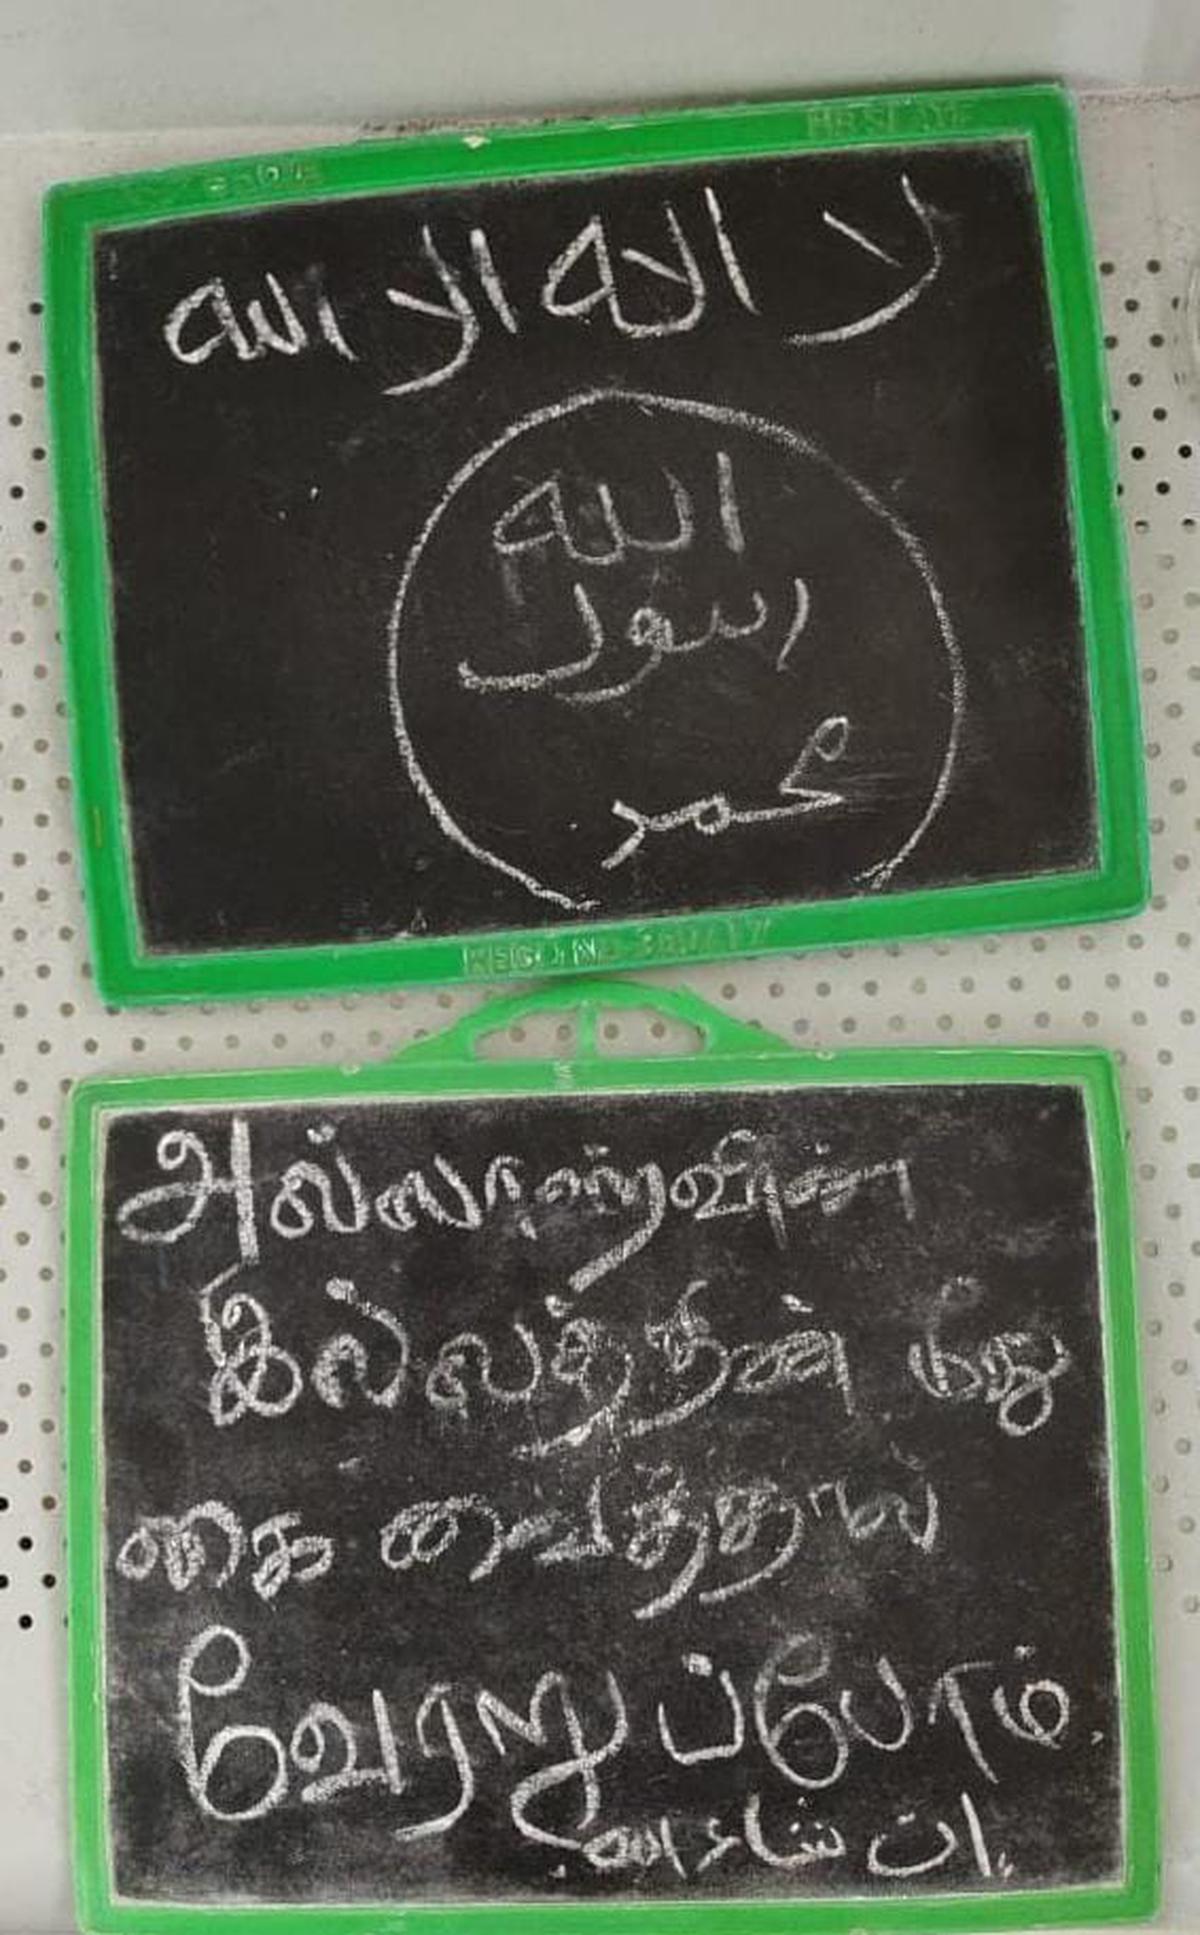 لا اله الا الله
الله
رسول
محمد
அல்லாஹ்வின்
இல்லத்தின் மீது
கை வைத்தால்
வேரறுப்போம்
ان شاء الله